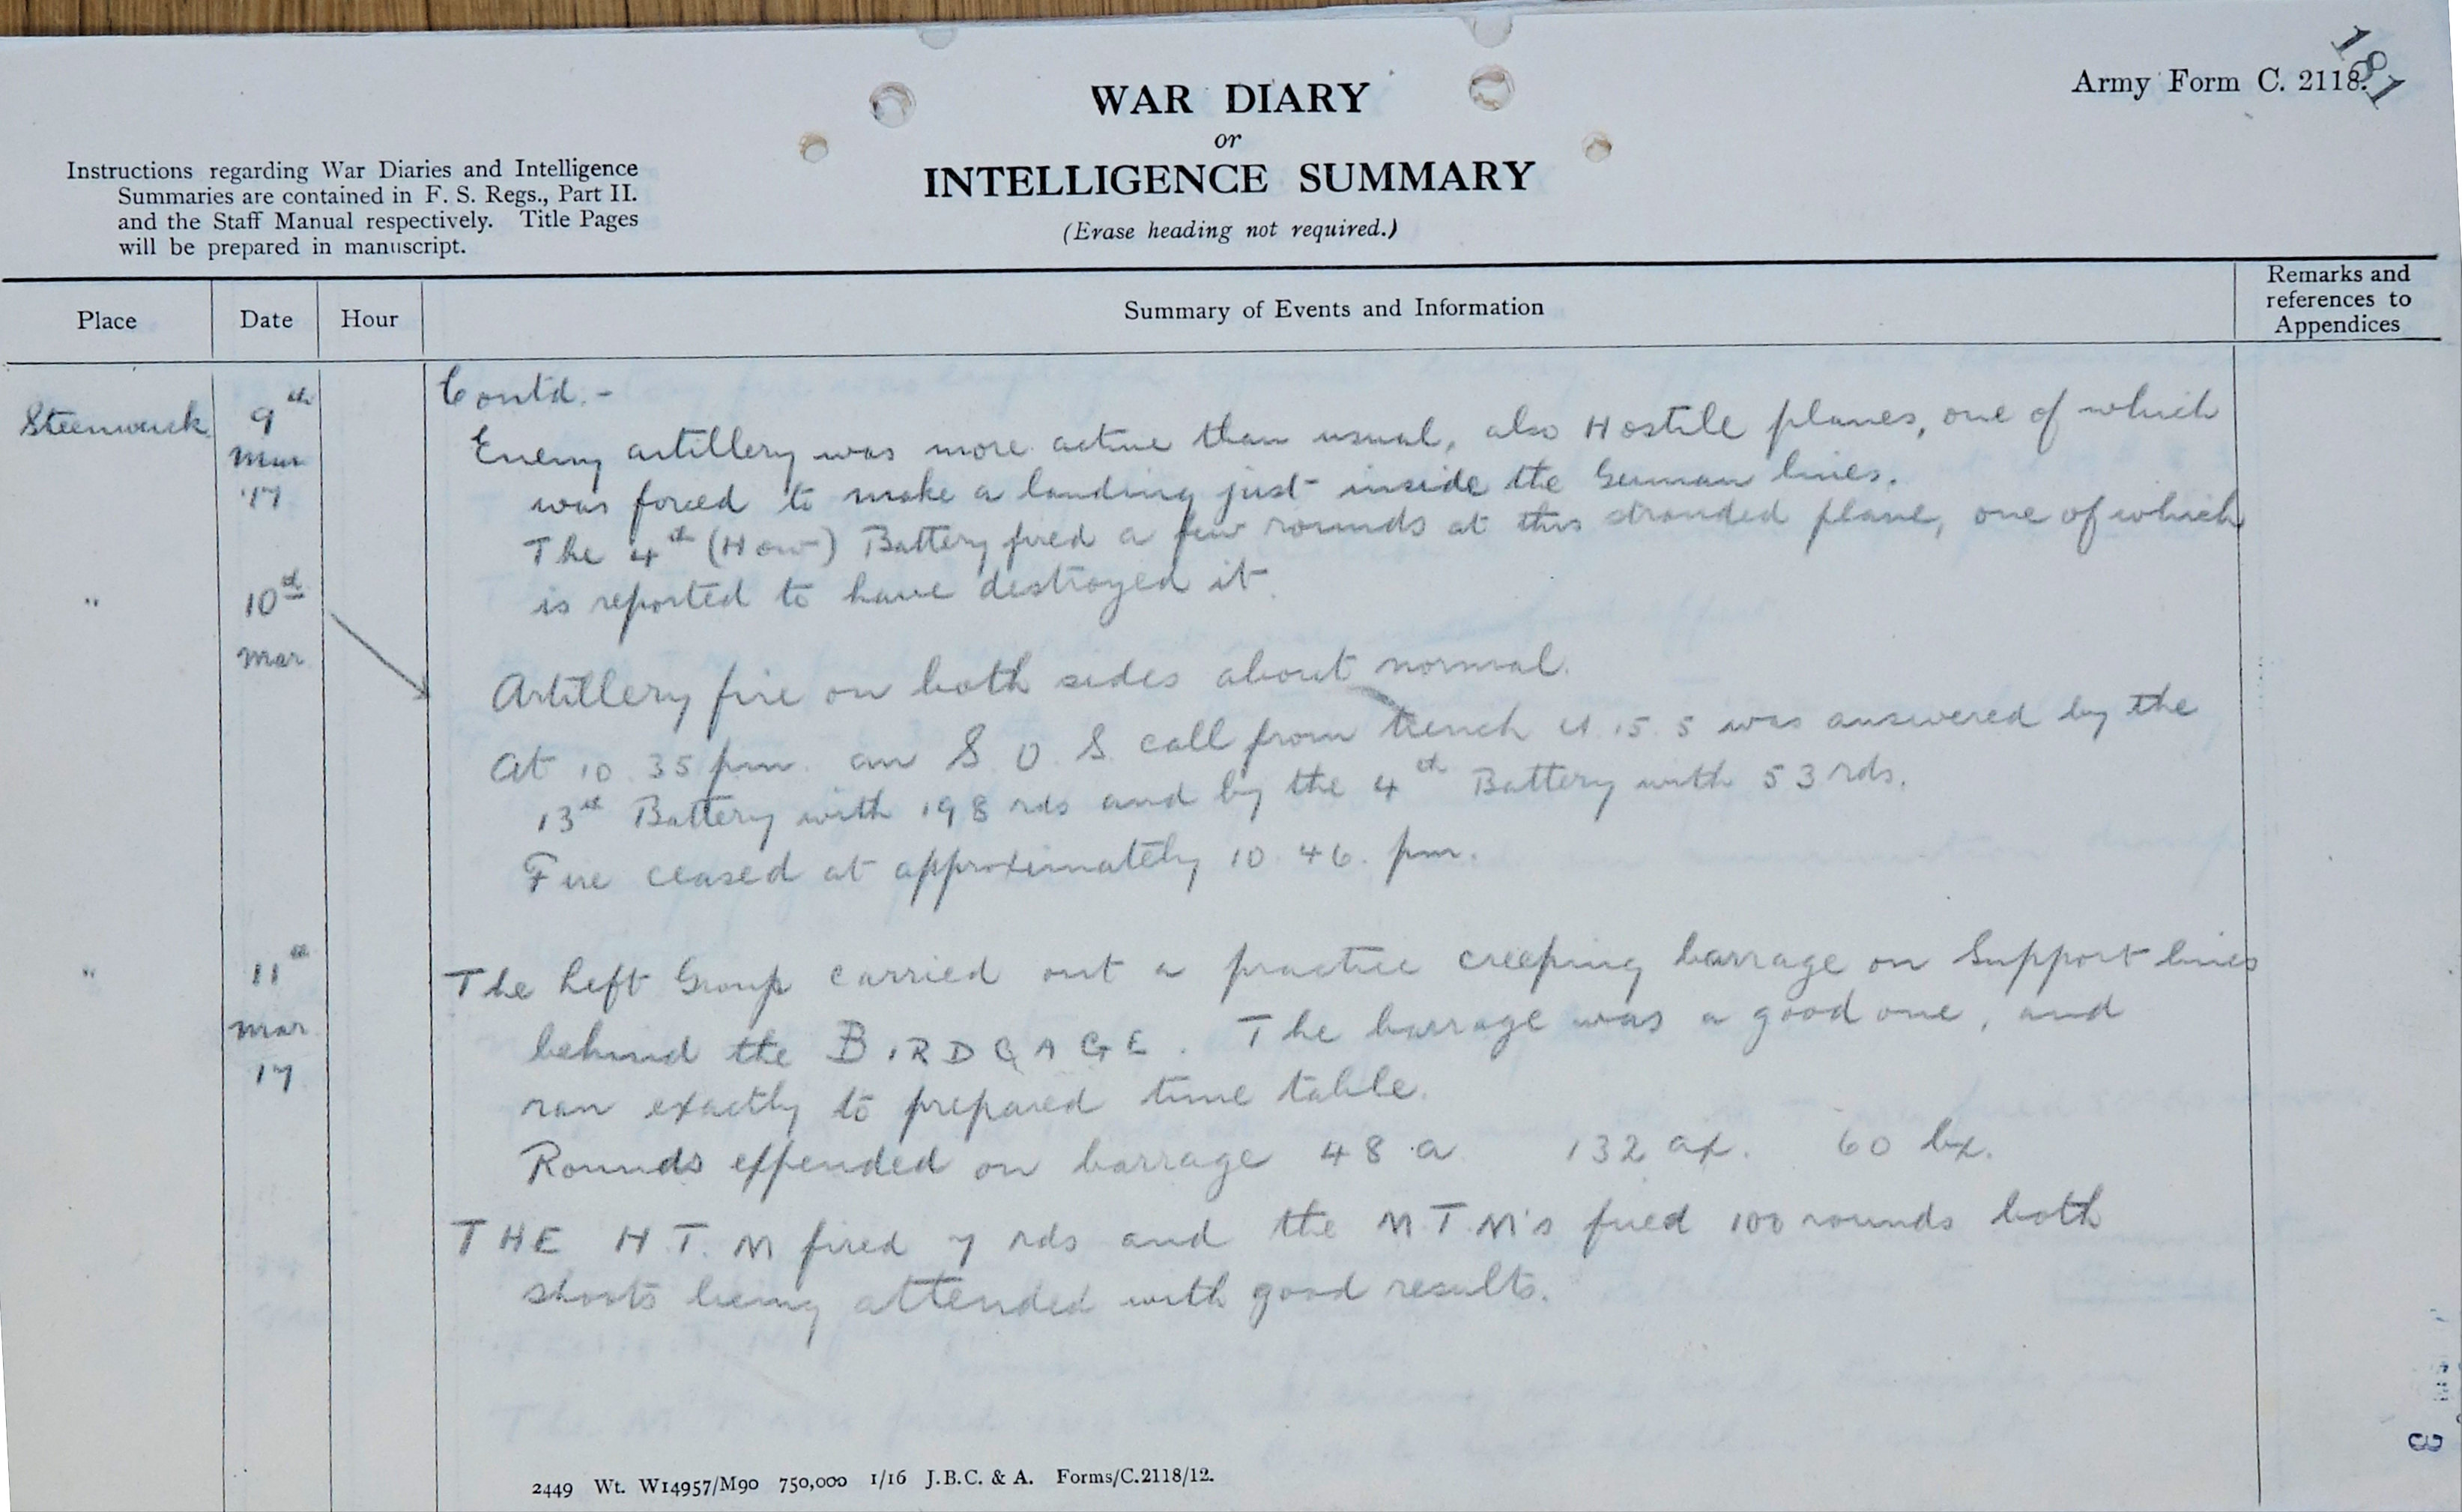 181
Army Form C. 2118.
WAR DIARY
or
INTELLIGENCE SUMMARY
(Erase heading not required.)
Instructions regarding War Diaries and Intelligence
Summaries are contained in F. S. Regs., Part II.
and the Staff Manual respectively. Title Pages
will be prepared in manuscript.
Place Date Hour Summary of Events and Information Remarks and
references to
Appendices
Steenwerck 9th
Mar
'17
Contd:-
Enemy artillery was more active than usual, also Hostile planes, one of which
was forced to make a landing just inside the German lines.
The 4th (How) Battery fired a few rounds at this stranded plane, one of which
is reported to have destroyed it.
" 10th
Mar
Artillery fire on both sides about normal.
At 10.35 pm. an S O S call from trench 15.5 was answered by the
13th Battery with 198 rds and by the 4th Battery with 53 rds.
Fire ceased at approximately 10.46. pm.
" 11th
Mar
17
The Left Group carried out a practice creeping barrage on Support lines
behind the BIRDCAGE. The barrage was a good one, and
ran exactly to prepared time table.
Rounds expended on barrage 48 a 132 ax. 60 bx.
THE H.T.M fired 7 rds and the M.T.M's fired 100 rounds both
shoots being attended with good results.
2449 Wt. W14957/M90 750,000 1/16 J.B.C. & A. Forms/C.2118/12.
3